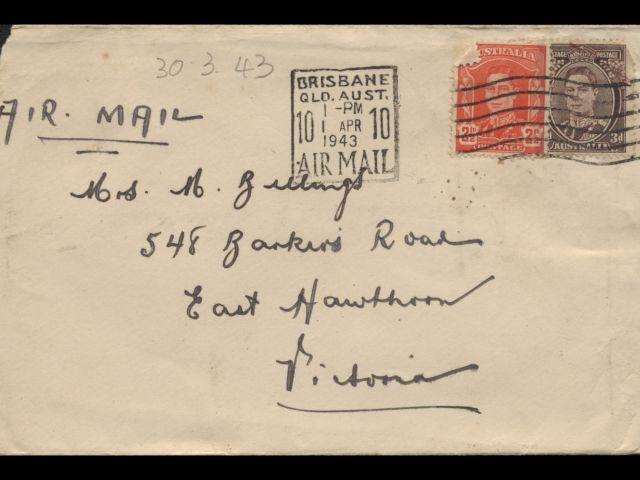 30.3.43
AIR. MAIL
BRISBANE
QLD. AUST.
1-PM
10 1 APR 10
1943
AIR MAIL
AUSTRALIA
2½D 2½D
POSTAGE
POSTAGE
3D
AUSTRALIA
Mrs. M. Billings
548 Barkers Road
East Hawthorn
Victoria